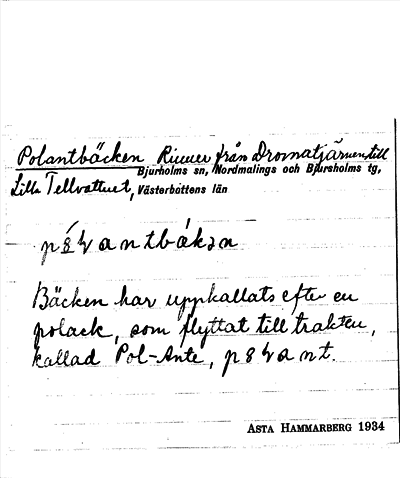 Polantbäcken Rinner från Dromatjärnen till
Bjurholms sn, Nordmalings och Bjurholms tg,
Lilla Tellvattnet, Västerbottens län
Bäcken har uppkallats efter en
polack, som flyttat till trakten,
kallad Pol-Ante,
ASTA HAMMARBERG 1934